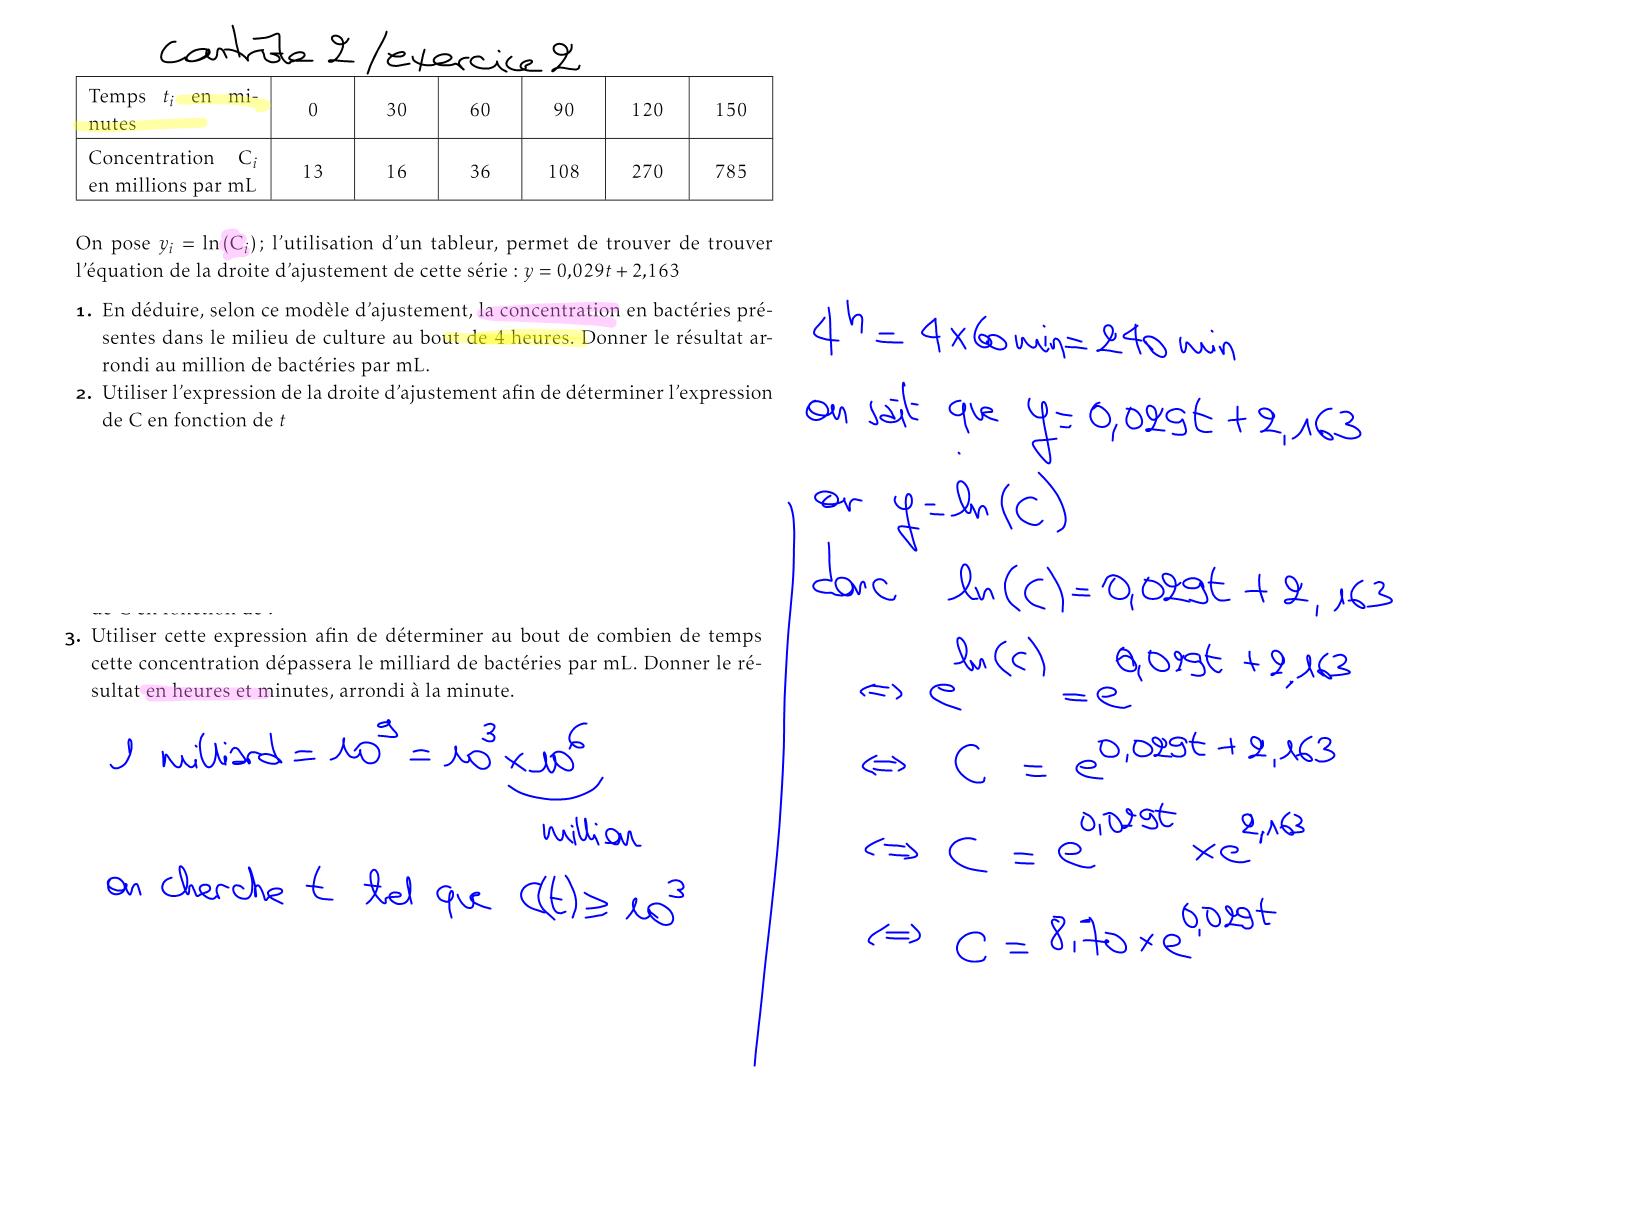 contrôle 2 / exercice 2
Temps tᵢ en mi-
nutes
0 30 60 90 120 150
Concentration Cᵢ
en millions par mL
13 16 36 108 270 785
On pose yᵢ = ln(Cᵢ) ; l'utilisation d'un tableur, permet de trouver de trouver
l'équation de la droite d'ajustement de cette série : y = 0,029t + 2,163
1. En déduire, selon ce modèle d'ajustement, la concentration en bactéries pré-
sentes dans le milieu de culture au bout de 4 heures. Donner le résultat ar-
rondi au million de bactéries par mL.
2. Utiliser l'expression de la droite d'ajustement afin de déterminer l'expression
de C en fonction de t
de C en fonction de t
3. Utiliser cette expression afin de déterminer au bout de combien de temps
cette concentration dépassera le milliard de bactéries par mL. Donner le ré-
sultat en heures et minutes, arrondi à la minute.
1 milliard = 10⁹ = 10³ × 10⁶
million
on cherche t tel que C(t) ≥ 10³
4ʰ = 4 × 60 min = 240 min
on sait que y = 0,029t + 2,163
or y = ln(C)
donc ln(C) = 0,029t + 2,163
⇔ e^ln(C) = e^0,029t + 2,163
⇔ C = e^0,029t + 2,163
⇔ C = e^0,029t × e^2,163
⇔ C = 8,70 × e^0,029t